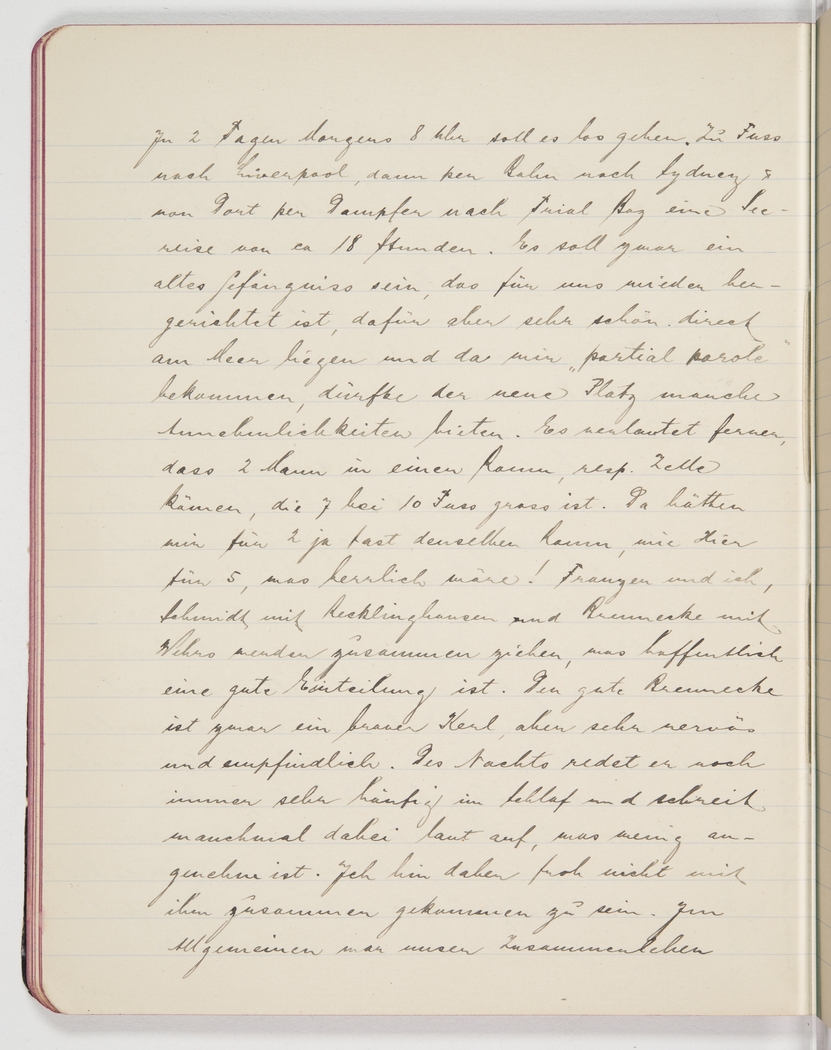 In 2 Tagen Morgens 8 Uhr soll es los gehen. Zu Fuss
nach Liverpool, dann per Bahn nach Sydney &
von Dort per Dampfer nach Trial Bay eine See-
reise von ca 18 Stunden. Es soll zwar ein
altes Gefängniss sein, das für uns wieder her-
gerichtet ist, dafür aber sehr schön direct
am Meer liegen und da wir „partial parole"
bekommen, dürfte der neue Platz manche
Annehmlichkeiten bieten. Es verlautet ferner,
dass 2 Mann in einen Raum, resp. Zelle
kämen, die 7 bei 10 Fuss gross ist. Da hätten
wir für 2 ja fast denselben Raum, wie Hier
für 5, was herrlich wäre! Franzen und ich,
Schmidt mit Recklinghausen und Brennecke mit
Wehrs werden zusammen ziehen, was hoffentlich
eine gute Einteilung ist. Der gute Brennecke
ist zwar ein braver Kerl, aber sehr nervös
und empfindlich. Des Nachts redet er noch
immer sehr häufig im Schlaf und schreit
manchmal dabei laut auf, was wenig an-
genehm ist. Ich bin daher froh nicht mit
ihm zusammen gekommen zu sein. Im
Allgemeinen war unser Zusammenleben